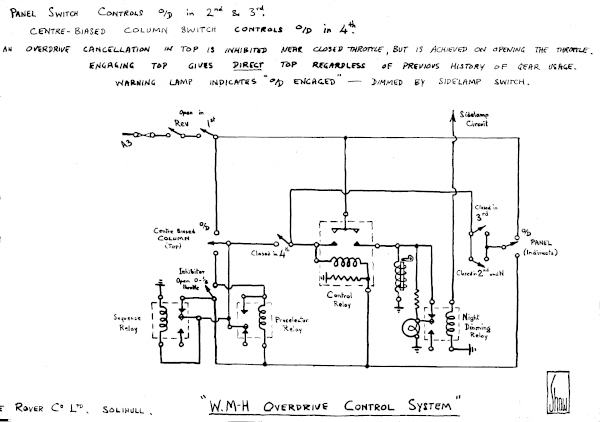 PANEL SWITCH CONTROLS O/D in 2nd & 3rd.
CENTRE-BIASED COLUMN SWITCH CONTROLS O/D in 4th.
AN OVERDRIVE CANCELLATION IN TOP IS INHIBITED NEAR CLOSED THROTTLE, BUT IS ACHIEVED ON OPENING THE THROTTLE.
ENGAGING TOP GIVES DIRECT TOP REGARDLESS OF PREVIOUS HISTORY OF GEAR USAGE.
WARNING LAMP INDICATES "O/D ENGAGED" — DIMMED BY SIDELAMP SWITCH.
Open in
Rev
1st
A3
Sidelamp
Circuit
O/D
Centre Biased
COLUMN
(Top)
Closed in 4th
Closed in
3rd
O/D
PANEL
(Indirects)
Closed in 2nd and N
Inhibitor
Open 0-1/8
Throttle
Control
Relay
Sequence
Relay
Procelector
Relay
Night
Dimming
Relay
E ROVER Co LTD. SOLIHULL.
"W.M-H OVERDRIVE CONTROL SYSTEM"
Shaw